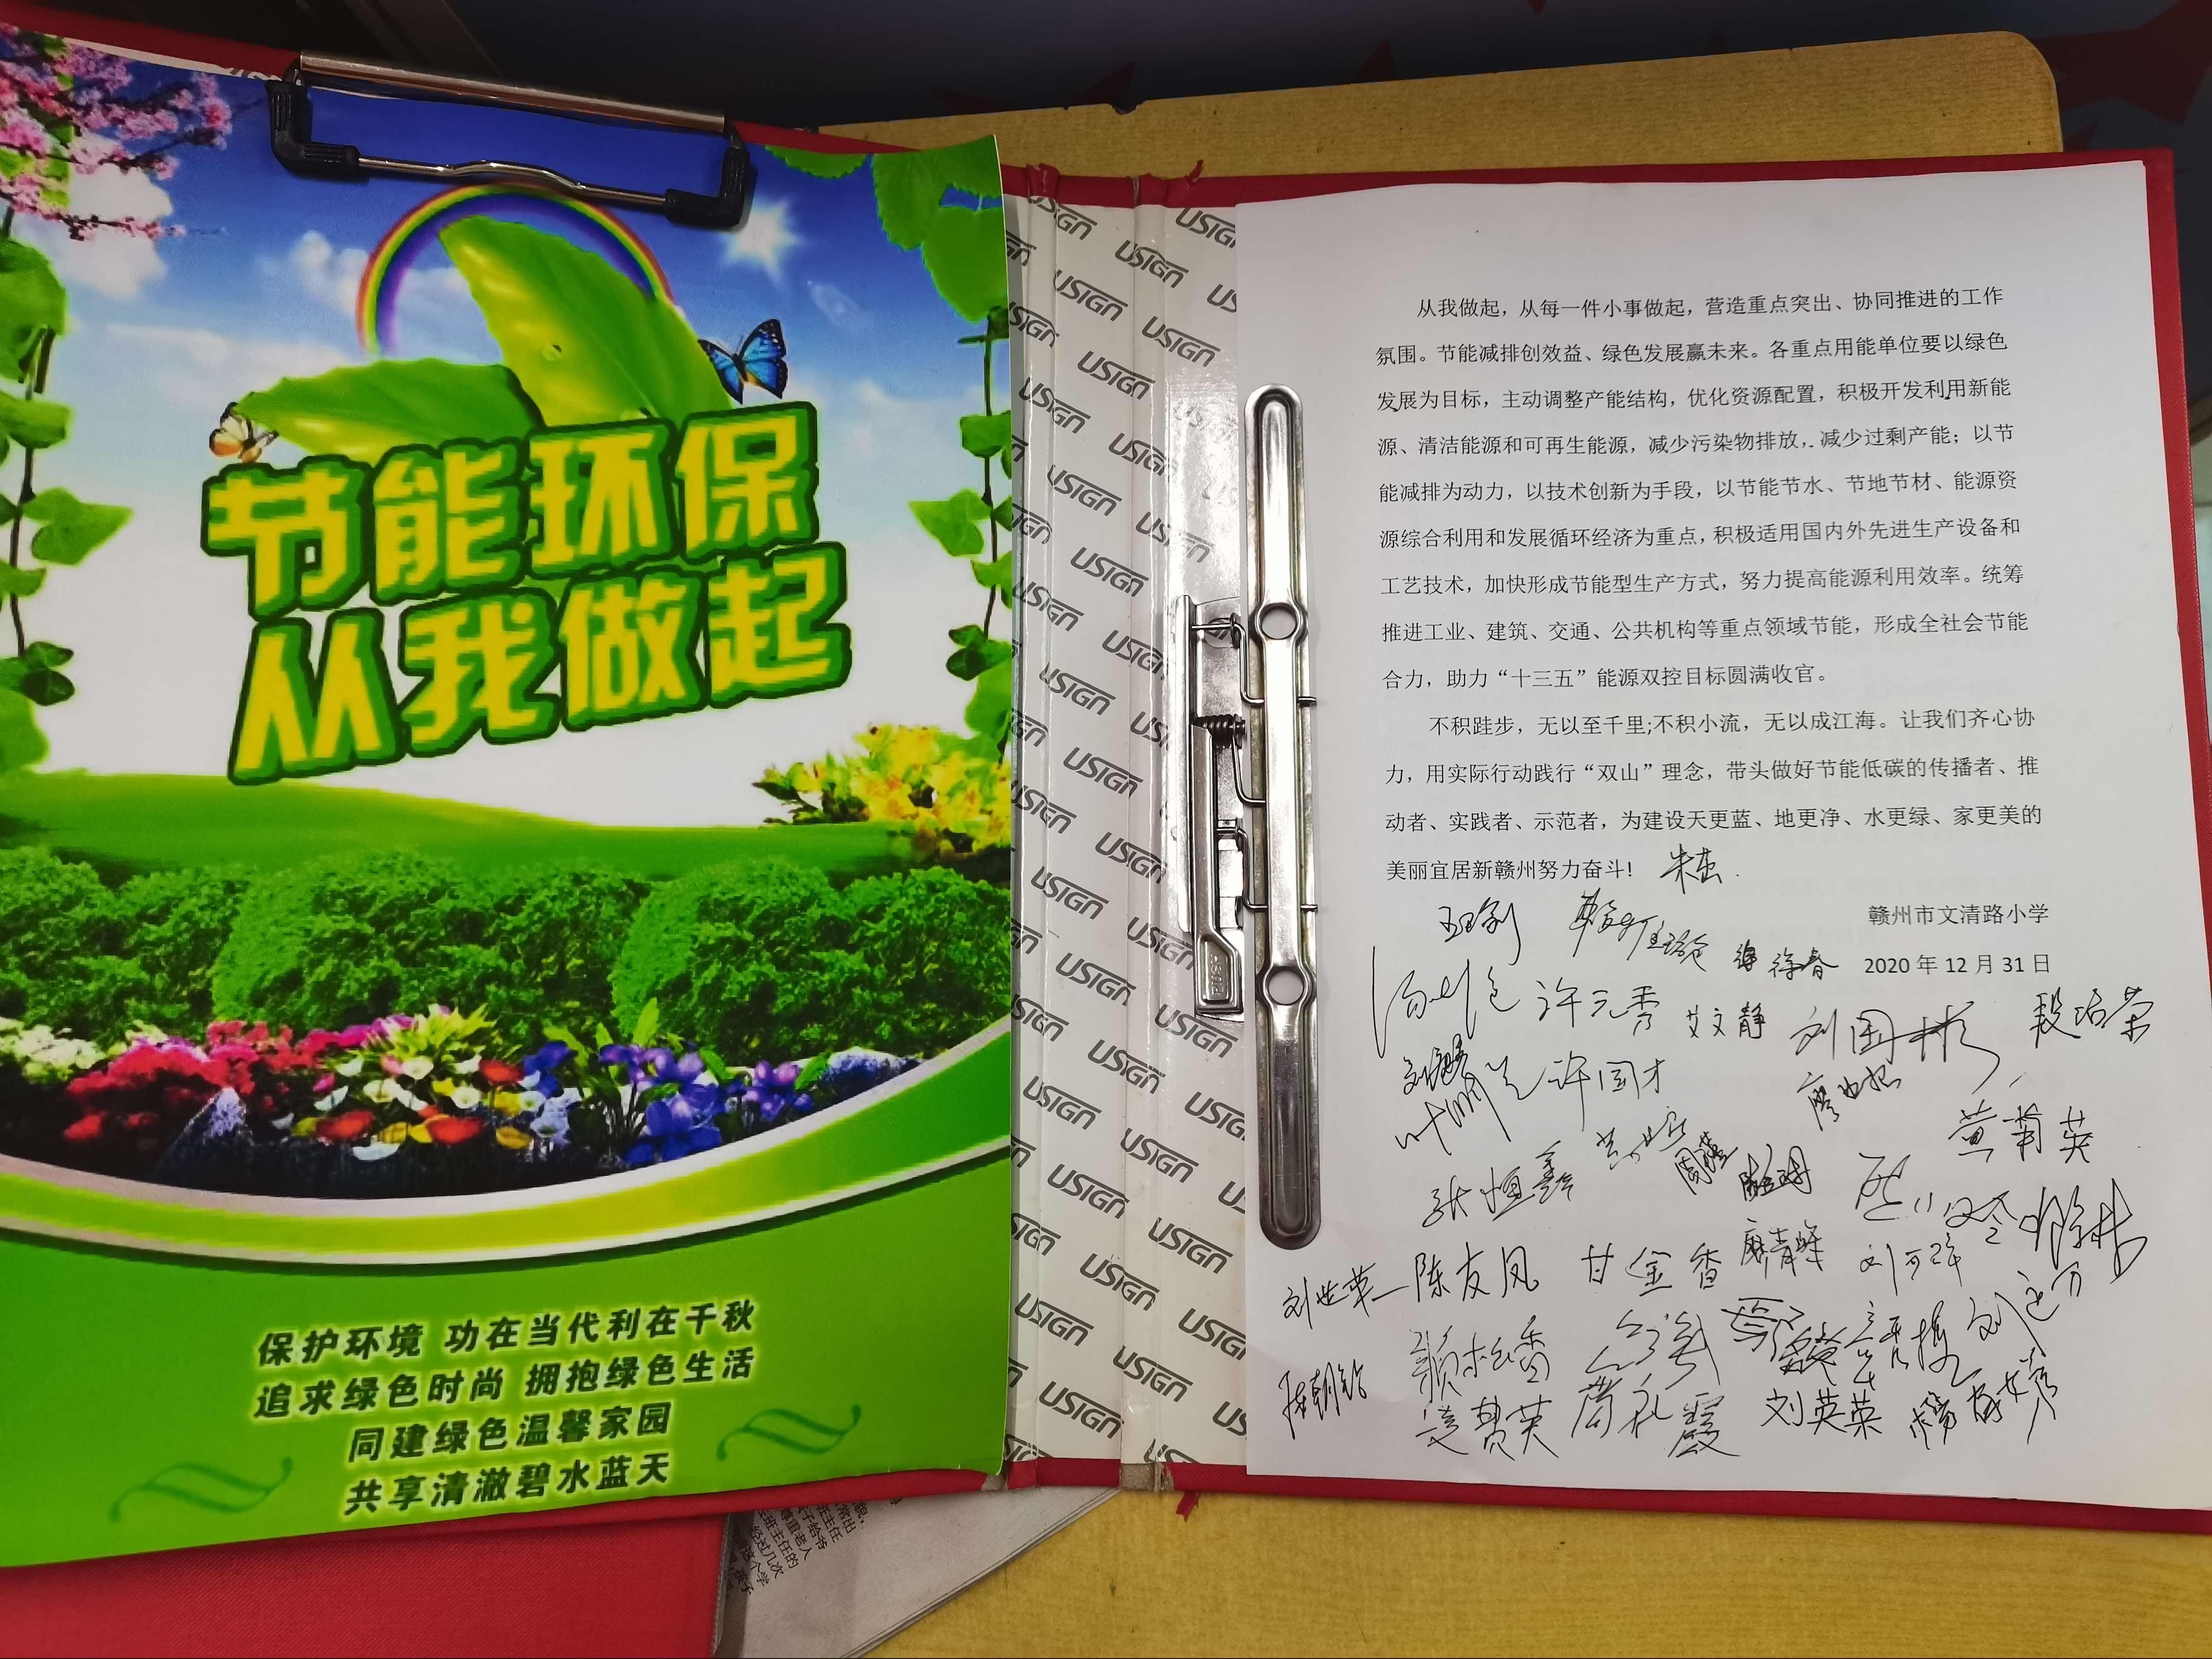 节能环保
从我做起
保护环境 功在当代利在千秋
追求绿色时尚 拥抱绿色生活
同建绿色温馨家园
共享清澈碧水蓝天
USIGN
从我做起，从每一件小事做起，营造重点突出、协同推进的工作
氛围。节能减排创效益、绿色发展赢未来。各重点用能单位要以绿色
发展为目标，主动调整产能结构，优化资源配置，积极开发利用新能
源、清洁能源和可再生能源，减少污染物排放，减少过剩产能；以节
能减排为动力，以技术创新为手段，以节能节水、节地节材、能源资
源综合利用和发展循环经济为重点，积极适用国内外先进生产设备和
工艺技术，加快形成节能型生产方式，努力提高能源利用效率。统筹
推进工业、建筑、交通、公共机构等重点领域节能，形成全社会节能
合力，助力“十三五”能源双控目标圆满收官。
不积跬步，无以至千里;不积小流，无以成江海。让我们齐心协
力，用实际行动践行“双山”理念，带头做好节能低碳的传播者、推
动者、实践者、示范者，为建设天更蓝、地更净、水更绿、家更美的
美丽宜居新赣州努力奋斗！
赣州市文清路小学
徐春
2020 年 12 月 31 日
许元秀
艾文静
刘国彬
许国才
黄菊英
张恒鑫
陈友凤
甘金香
赖桂香
刘英英